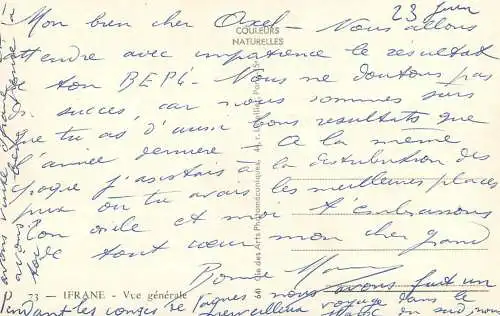 23 Juin
Mon bien cher Axel - Nous allons
attendre avec impatience le résultat
de ton BEPC - Nous ne doutons pas
du succès, car nous sommes sûrs
que tu as d'aussi bons résultats que
l'année dernière - A la même
époque j'assistais à la distribution des
prix où tu avais les meilleures places
Ton oncle et moi t'embrassons
de tout cœur mon cher grand
Bonne
Pendant les congés de Pâques nous avons fait un
merveilleux voyage dans le
du sud, nous
avons visité
avons
COULEURS
NATURELLES
23 — IFRANE - Vue générale
Cie des Arts Photomécaniques